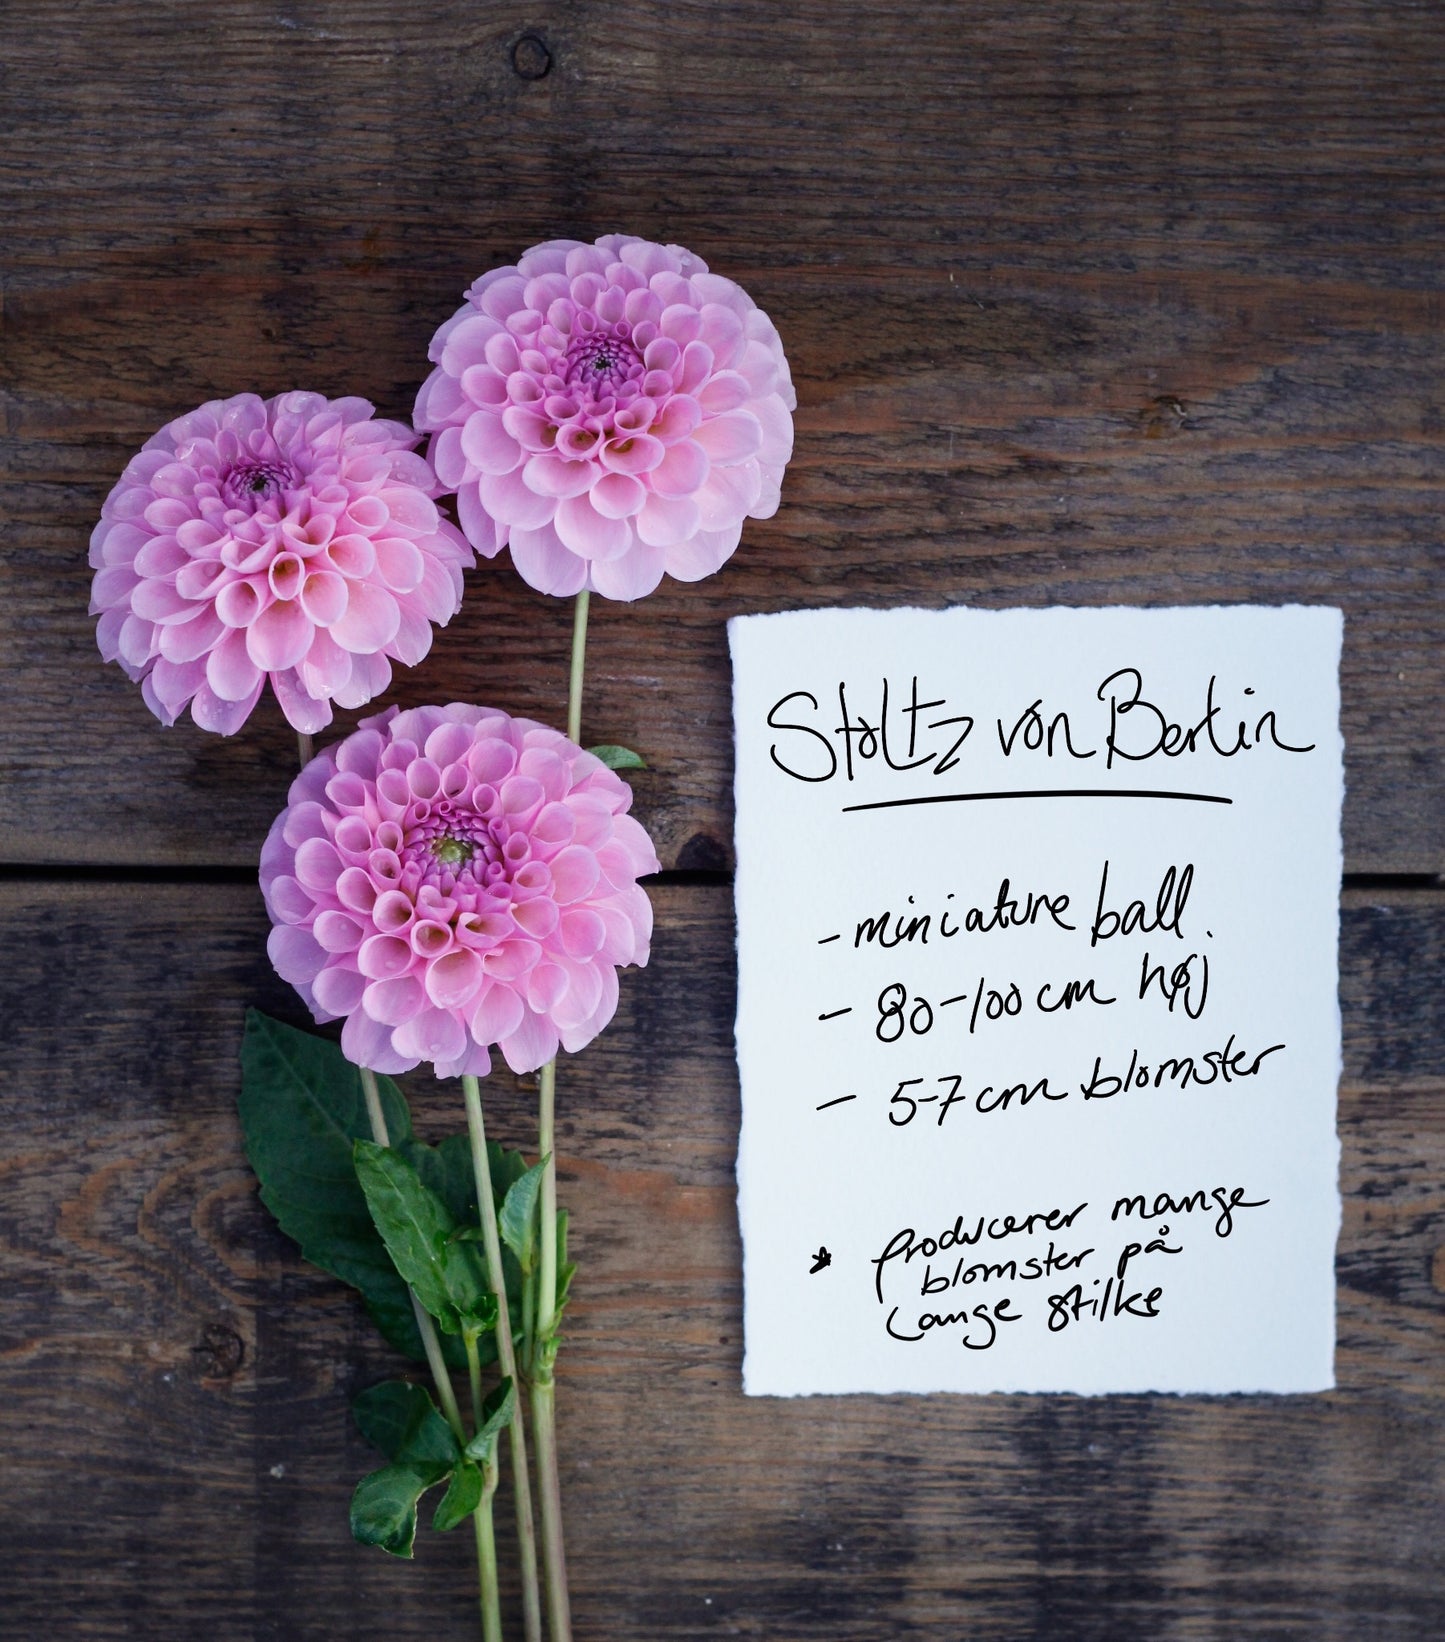 Stoltz von Berlin
- miniature ball.
- 80-100 cm høj
- 5-7 cm blomster
* producerer mange
blomster på
lange stilke